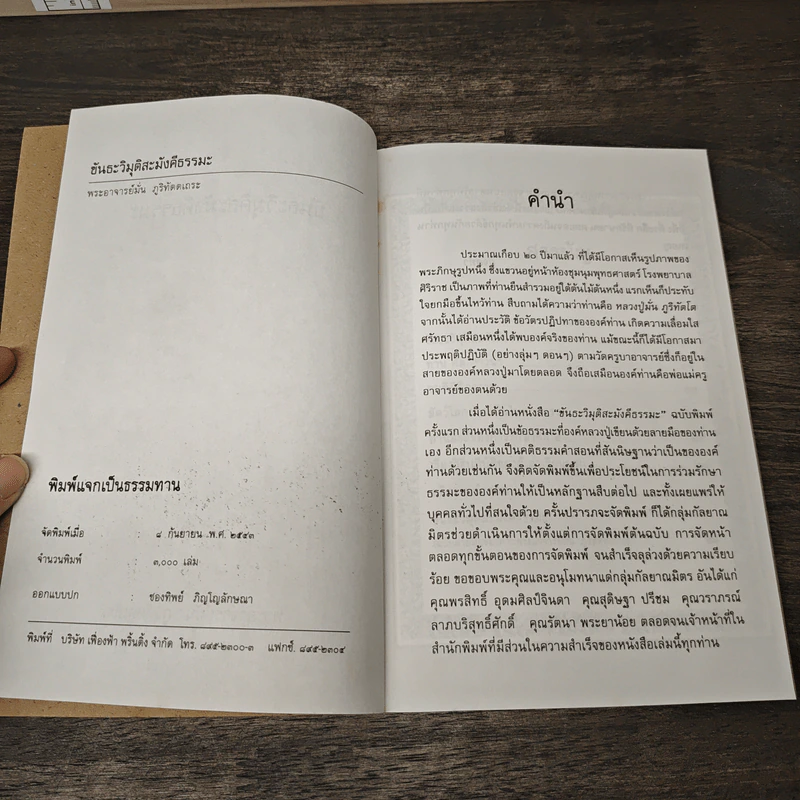 ขันธะวิมุติสะมังคีธรรมะ
พระอาจารย์มั่น ภูริทัตตเถระ
พิมพ์แจกเป็นธรรมทาน
จัดพิมพ์เมื่อ : ๘ กันยายน พ.ศ. ๒๕๔๓
จำนวนพิมพ์ : ๓,๐๐๐ เล่ม
ออกแบบปก : ช่องทิพย์ ภิญโญลักษณา
พิมพ์ที่ บริษัท เฟื่องฟ้า พริ้นติ้ง จำกัด โทร. ๘๙๕-๒๓๐๐-๓ แฟกซ์. ๘๙๕-๒๓๐๕
คำนำ
ประมาณเกือบ ๒๐ ปีมาแล้ว ที่ได้มีโอกาสเห็นรูปภาพของ
พระภิกษุรูปหนึ่ง ซึ่งแขวนอยู่หน้าห้องชุมนุมพุทธศาสตร์ โรงพยาบาล
ศิริราช เป็นภาพที่ท่านยืนสำรวมอยู่ใต้ต้นไม้ต้นหนึ่ง แรกเห็นก็ประทับ
ใจยกมือขึ้นไหว้ท่าน สืบถามได้ความว่าท่านคือ หลวงปู่มั่น ภูริทัตโต
จากนั้นได้อ่านประวัติ ข้อวัตรปฏิปทาขององค์ท่าน เกิดความเลื่อมใส
ศรัทธา เสมือนหนึ่งได้พบองค์จริงของท่าน แม้ขณะนี้ก็ได้มีโอกาสมา
ประพฤติปฏิบัติ (อย่างลุ่มๆ ดอนๆ) ตามวัดครูบาอาจารย์ซึ่งก็อยู่ใน
สายขององค์หลวงปู่มาโดยตลอด จึงถือเสมือนองค์ท่านคือพ่อแม่ครู
อาจารย์ของตนด้วย
เมื่อได้อ่านหนังสือ "ขันธะวิมุติสะมังคีธรรมะ" ฉบับพิมพ์
ครั้งแรก ส่วนหนึ่งเป็นข้อธรรมะที่องค์หลวงปู่เขียนด้วยลายมือของท่าน
เอง อีกส่วนหนึ่งเป็นคติธรรมคำสอนที่สันนิษฐานว่าเป็นขององค์
ท่านด้วยเช่นกัน จึงคิดจัดพิมพ์ขึ้นเพื่อประโยชน์ในการร่วมรักษา
ธรรมะขององค์ท่านให้เป็นหลักฐานสืบต่อไป และทั้งเผยแพร่ให้
บุคคลทั่วไปที่สนใจด้วย ครั้นปรารภจะจัดพิมพ์ ก็ได้กลุ่มกัลยาณ
มิตรช่วยดำเนินการให้ตั้งแต่การจัดพิมพ์ต้นฉบับ การจัดหน้า
ตลอดทุกขั้นตอนของการจัดพิมพ์ จนสำเร็จลุล่วงด้วยความเรียบ
ร้อย ขอขอบพระคุณและอนุโมทนาแด่กลุ่มกัลยาณมิตร อันได้แก่
คุณพรสิทธิ์ อุดมศิลป์จินดา คุณสุดิษฐา ปรีชม คุณวราภรณ์
ลาภบริสุทธิ์ศักดิ์ คุณรัตนา พระยาน้อย ตลอดจนเจ้าหน้าที่ใน
สำนักพิมพ์ที่มีส่วนในความสำเร็จของหนังสือเล่มนี้ทุกท่าน